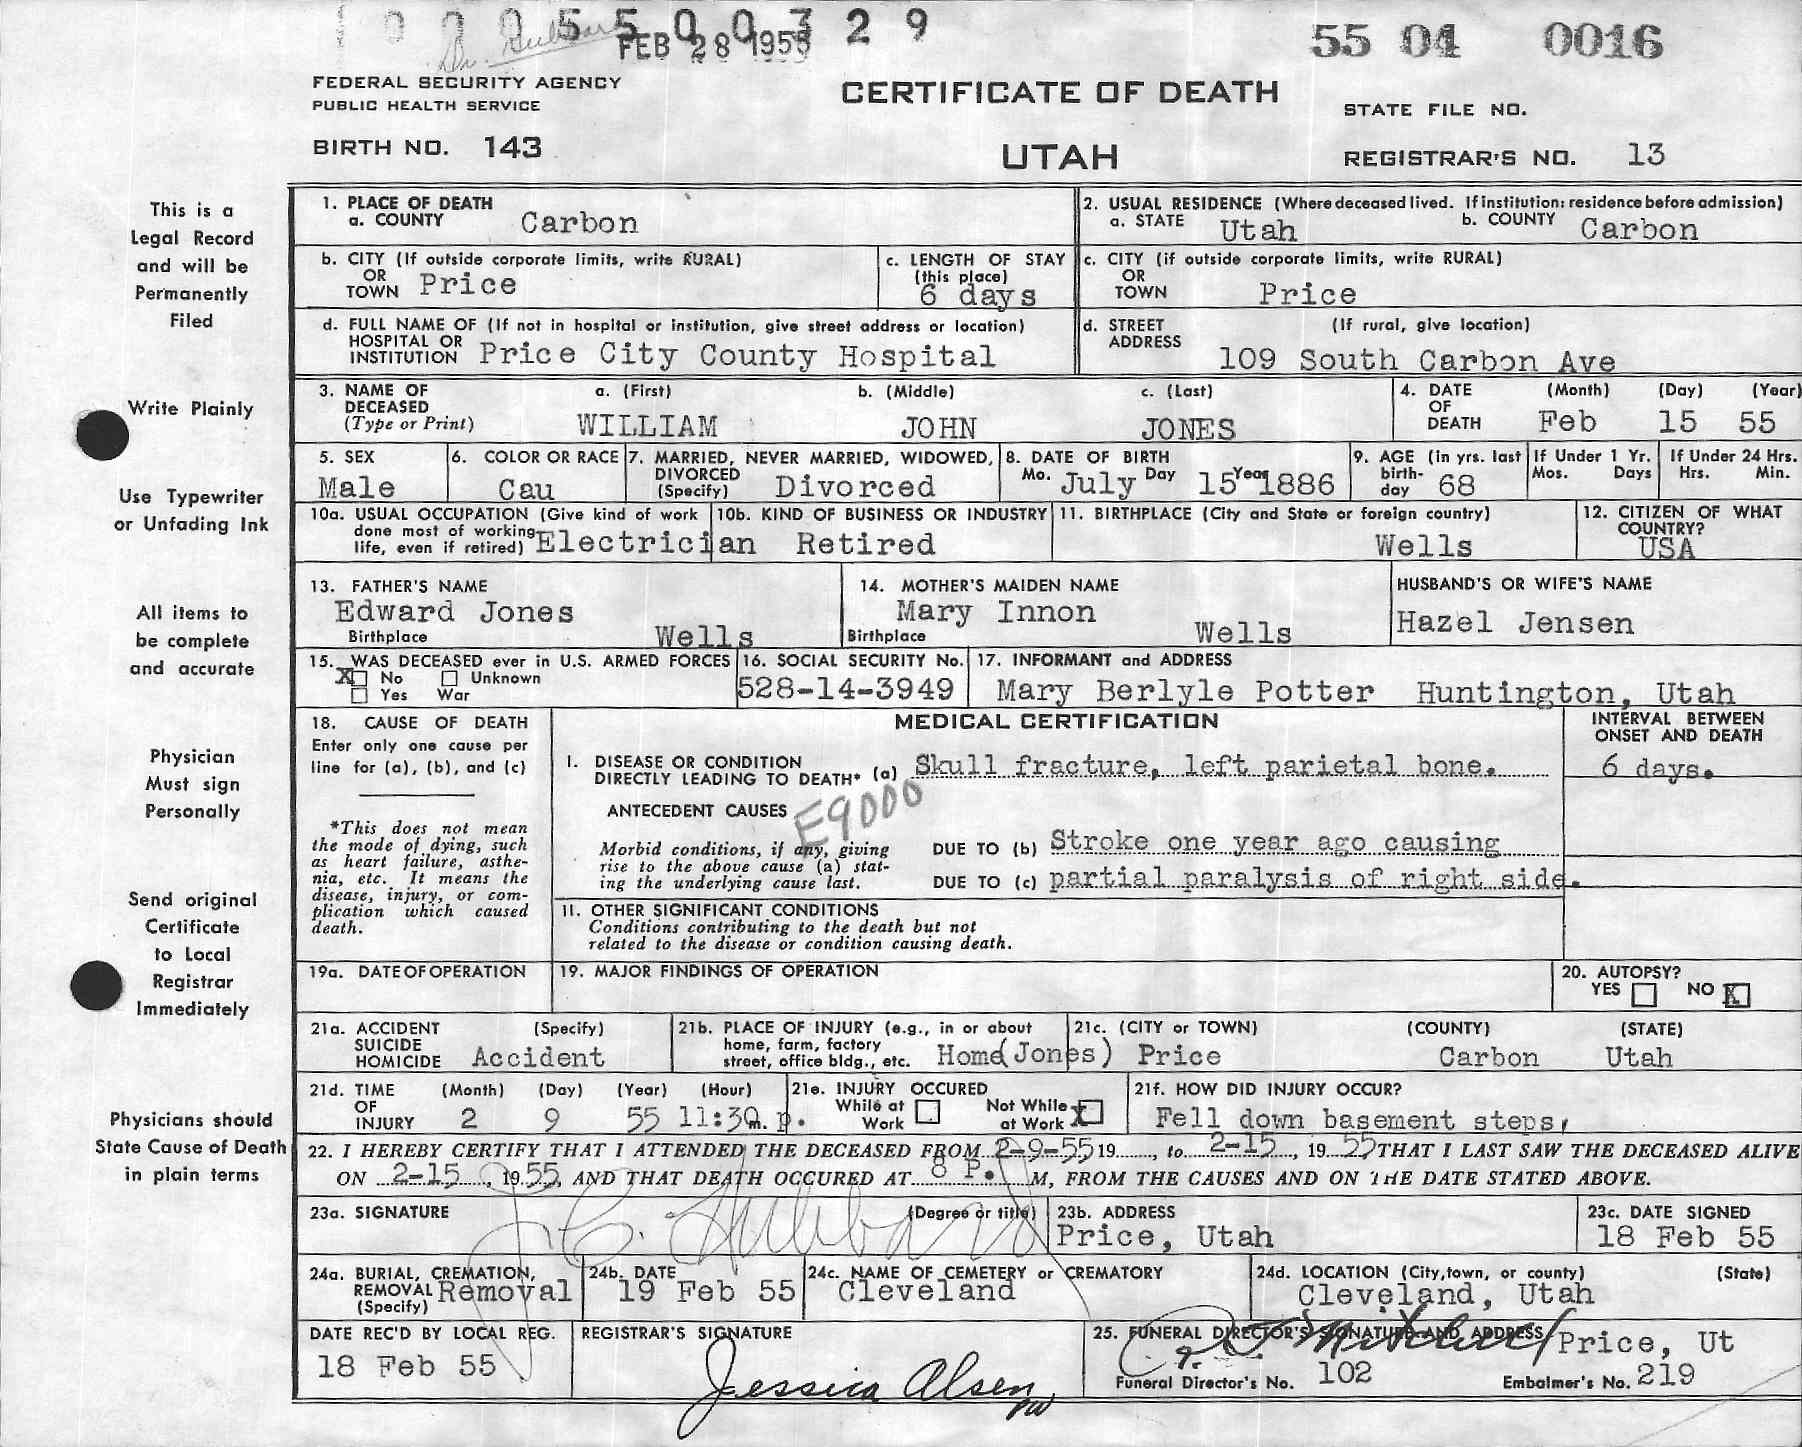 1 0 0 0 5 5 0 0 3 2 9
Dr. Hubbard
FEB 28 1955
55 04 0016
FEDERAL SECURITY AGENCY
PUBLIC HEALTH SERVICE
CERTIFICATE OF DEATH
STATE FILE NO.
BIRTH NO. 143
UTAH
REGISTRAR'S NO. 13
This is a
Legal Record
and will be
Permanently
Filed
Write Plainly
Use Typewriter
or Unfading Ink
All items to
be complete
and accurate
Physician
Must sign
Personally
Send original
Certificate
to Local
Registrar
Immediately
Physicians should
State Cause of Death
in plain terms
1. PLACE OF DEATH
a. COUNTY Carbon
2. USUAL RESIDENCE (Where deceased lived. If institution: residence before admission)
a. STATE Utah b. COUNTY Carbon
b. CITY (If outside corporate limits, write RURAL)
OR
TOWN Price
c. LENGTH OF STAY
(this place)
6 days
c. CITY (if outside corporate limits, write RURAL)
OR
TOWN Price
d. FULL NAME OF (If not in hospital or institution, give street address or location)
HOSPITAL OR
INSTITUTION Price City County Hospital
d. STREET (If rural, give location)
ADDRESS
109 South Carbon Ave
3. NAME OF a. (First) b. (Middle) c. (Last)
DECEASED
(Type or Print) WILLIAM JOHN JONES
4. DATE (Month) (Day) (Year)
OF
DEATH Feb 15 55
5. SEX
Male
6. COLOR OR RACE
Cau
7. MARRIED, NEVER MARRIED, WIDOWED,
DIVORCED
(Specify) Divorced
8. DATE OF BIRTH
Mo. July Day 15 Year 1886
9. AGE (In yrs. last
birth-
day 68
If Under 1 Yr.
Mos. Days
If Under 24 Hrs.
Hrs. Min.
10a. USUAL OCCUPATION (Give kind of work
done most of working
life, even if retired) Electrician Retired
10b. KIND OF BUSINESS OR INDUSTRY
11. BIRTHPLACE (City and State or foreign country)
Wells
12. CITIZEN OF WHAT
COUNTRY?
USA
13. FATHER'S NAME
Edward Jones
Birthplace Wells
14. MOTHER'S MAIDEN NAME
Mary Innon
Birthplace Wells
HUSBAND'S OR WIFE'S NAME
Hazel Jensen
15. WAS DECEASED ever in U.S. ARMED FORCES
X No Unknown
Yes War
16. SOCIAL SECURITY No.
528-14-3949
17. INFORMANT and ADDRESS
Mary Berlyle Potter Huntington, Utah
18. CAUSE OF DEATH
Enter only one cause per
line for (a), (b), and (c)
*This does not mean
the mode of dying, such
as heart failure, asthe-
nia, etc. It means the
disease, injury, or com-
plication which caused
death.
MEDICAL CERTIFICATION
INTERVAL BETWEEN
ONSET AND DEATH
I. DISEASE OR CONDITION
DIRECTLY LEADING TO DEATH* (a) Skull fracture, left parietal bone.
6 days.
ANTECEDENT CAUSES
E9000
Morbid conditions, if any, giving
rise to the above cause (a) stat-
ing the underlying cause last.
DUE TO (b) Stroke one year ago causing
DUE TO (c) partial paralysis of right side.
II. OTHER SIGNIFICANT CONDITIONS
Conditions contributing to the death but not
related to the disease or condition causing death.
19a. DATE OF OPERATION
19. MAJOR FINDINGS OF OPERATION
20. AUTOPSY?
YES NO X
21a. ACCIDENT (Specify)
SUICIDE
HOMICIDE Accident
21b. PLACE OF INJURY (e.g., in or about
home, farm, factory
street, office bldg., etc. Home(Jones)
21c. (CITY or TOWN) (COUNTY) (STATE)
Price Carbon Utah
21d. TIME (Month) (Day) (Year) (Hour)
OF
INJURY 2 9 55 11:30m. p.
21e. INJURY OCCURED
While at Work Not While at Work X
21f. HOW DID INJURY OCCUR?
Fell down basement steps,
22. I HEREBY CERTIFY THAT I ATTENDED THE DECEASED FROM 2-9-55 19......, to 2-15, 19 55 THAT I LAST SAW THE DECEASED ALIVE
ON 2-15, 19 55, AND THAT DEATH OCCURED AT 8 P. M, FROM THE CAUSES AND ON THE DATE STATED ABOVE.
23a. SIGNATURE (Degree or title)
Hubbard
23b. ADDRESS
Price, Utah
23c. DATE SIGNED
18 Feb 55
24a. BURIAL, CREMATION,
REMOVAL Removal
(Specify)
24b. DATE
19 Feb 55
24c. NAME OF CEMETERY or CREMATORY
Cleveland
24d. LOCATION (City, town, or county) (State)
Cleveland, Utah
DATE REC'D BY LOCAL REG.
18 Feb 55
REGISTRAR'S SIGNATURE
Jessica Olsen
25. FUNERAL DIRECTOR'S SIGNATURE AND ADDRESS
Mitchell Price, Ut
Funeral Director's No. 102 Embalmer's No. 219